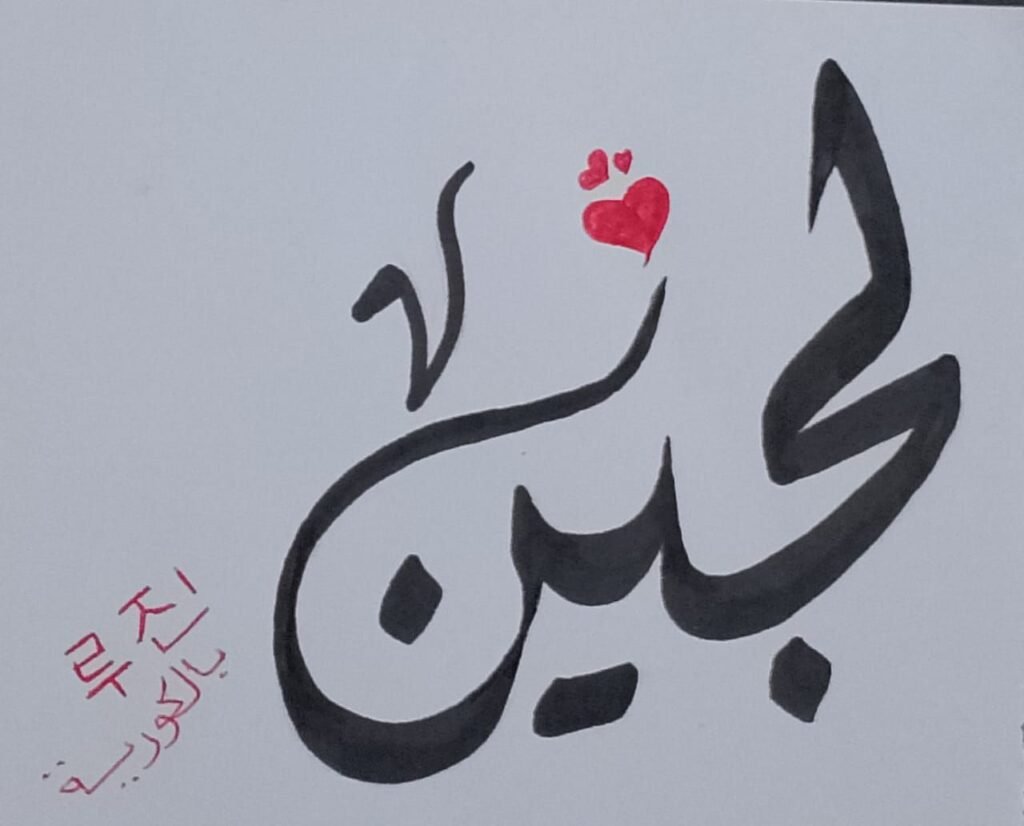 لجين
루진
بالكورية